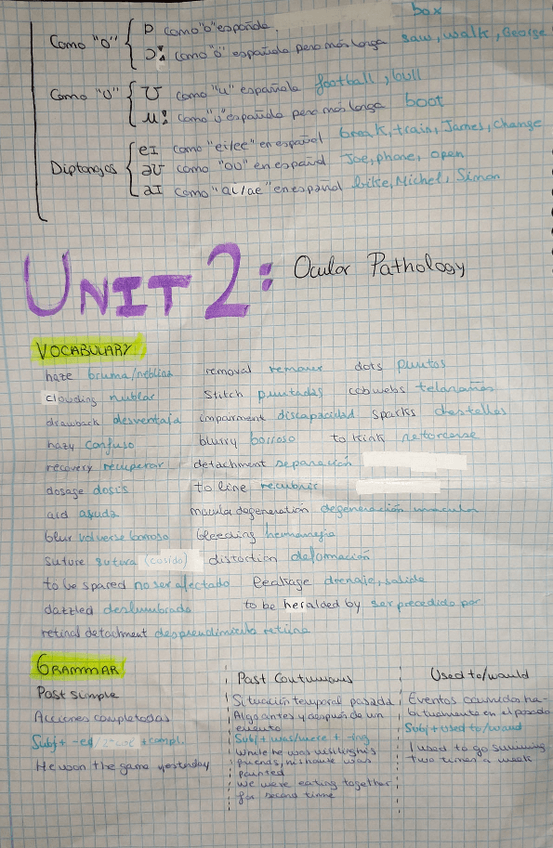 box
Como "o" { ɒ como "o" española.
ɔ: como "o" española pero más larga saw, walk, George
Como "U" { ʊ como "u" española football, bull
u: como "u" española pero más larga boot
Diptongos { eɪ como "ei/ee" en español break, train, James, change
əʊ como "ou" en español Joe, phone, open
aɪ como "ai/ae" en español bike, Michel, Simon
UNIT 2: Ocular Pathology
VOCABULARY
haze bruma/neblina removal remover dots puntos
clouding nublar stitch puntadas cobwebs telarañas
drawback desventaja impairment discapacidad sparks destellos
hazy confuso blurry borroso to kink retorcerse
recovery recuperar detachment separación
dosage dosis to line recubrir
aid ayuda macular degeneración degeneración macular
blur volverse borroso bleeding hemorragia
suture sutura (cosido) distortion deformación
to be spared no ser afectado leakage drenaje, salida
dazzled deslumbrado to be heralded by ser precedido por
retinal detachment desprendimiento retina
GRAMMAR
Past simple
Acciones completadas
Subj + -ed/2ª col + compl.
He won the game yesterday
Past Continuous
Situación temporal pasada
Algo antes y después de un
evento
Subj + was/were + -ing
While he was visiting his
friends, his house was
painted
We were eating together
for second time
Used to/would
Eventos ocurridos ha-
bitualmente en el pasado
Subj + used to/would
I used to go swimming
two times a week